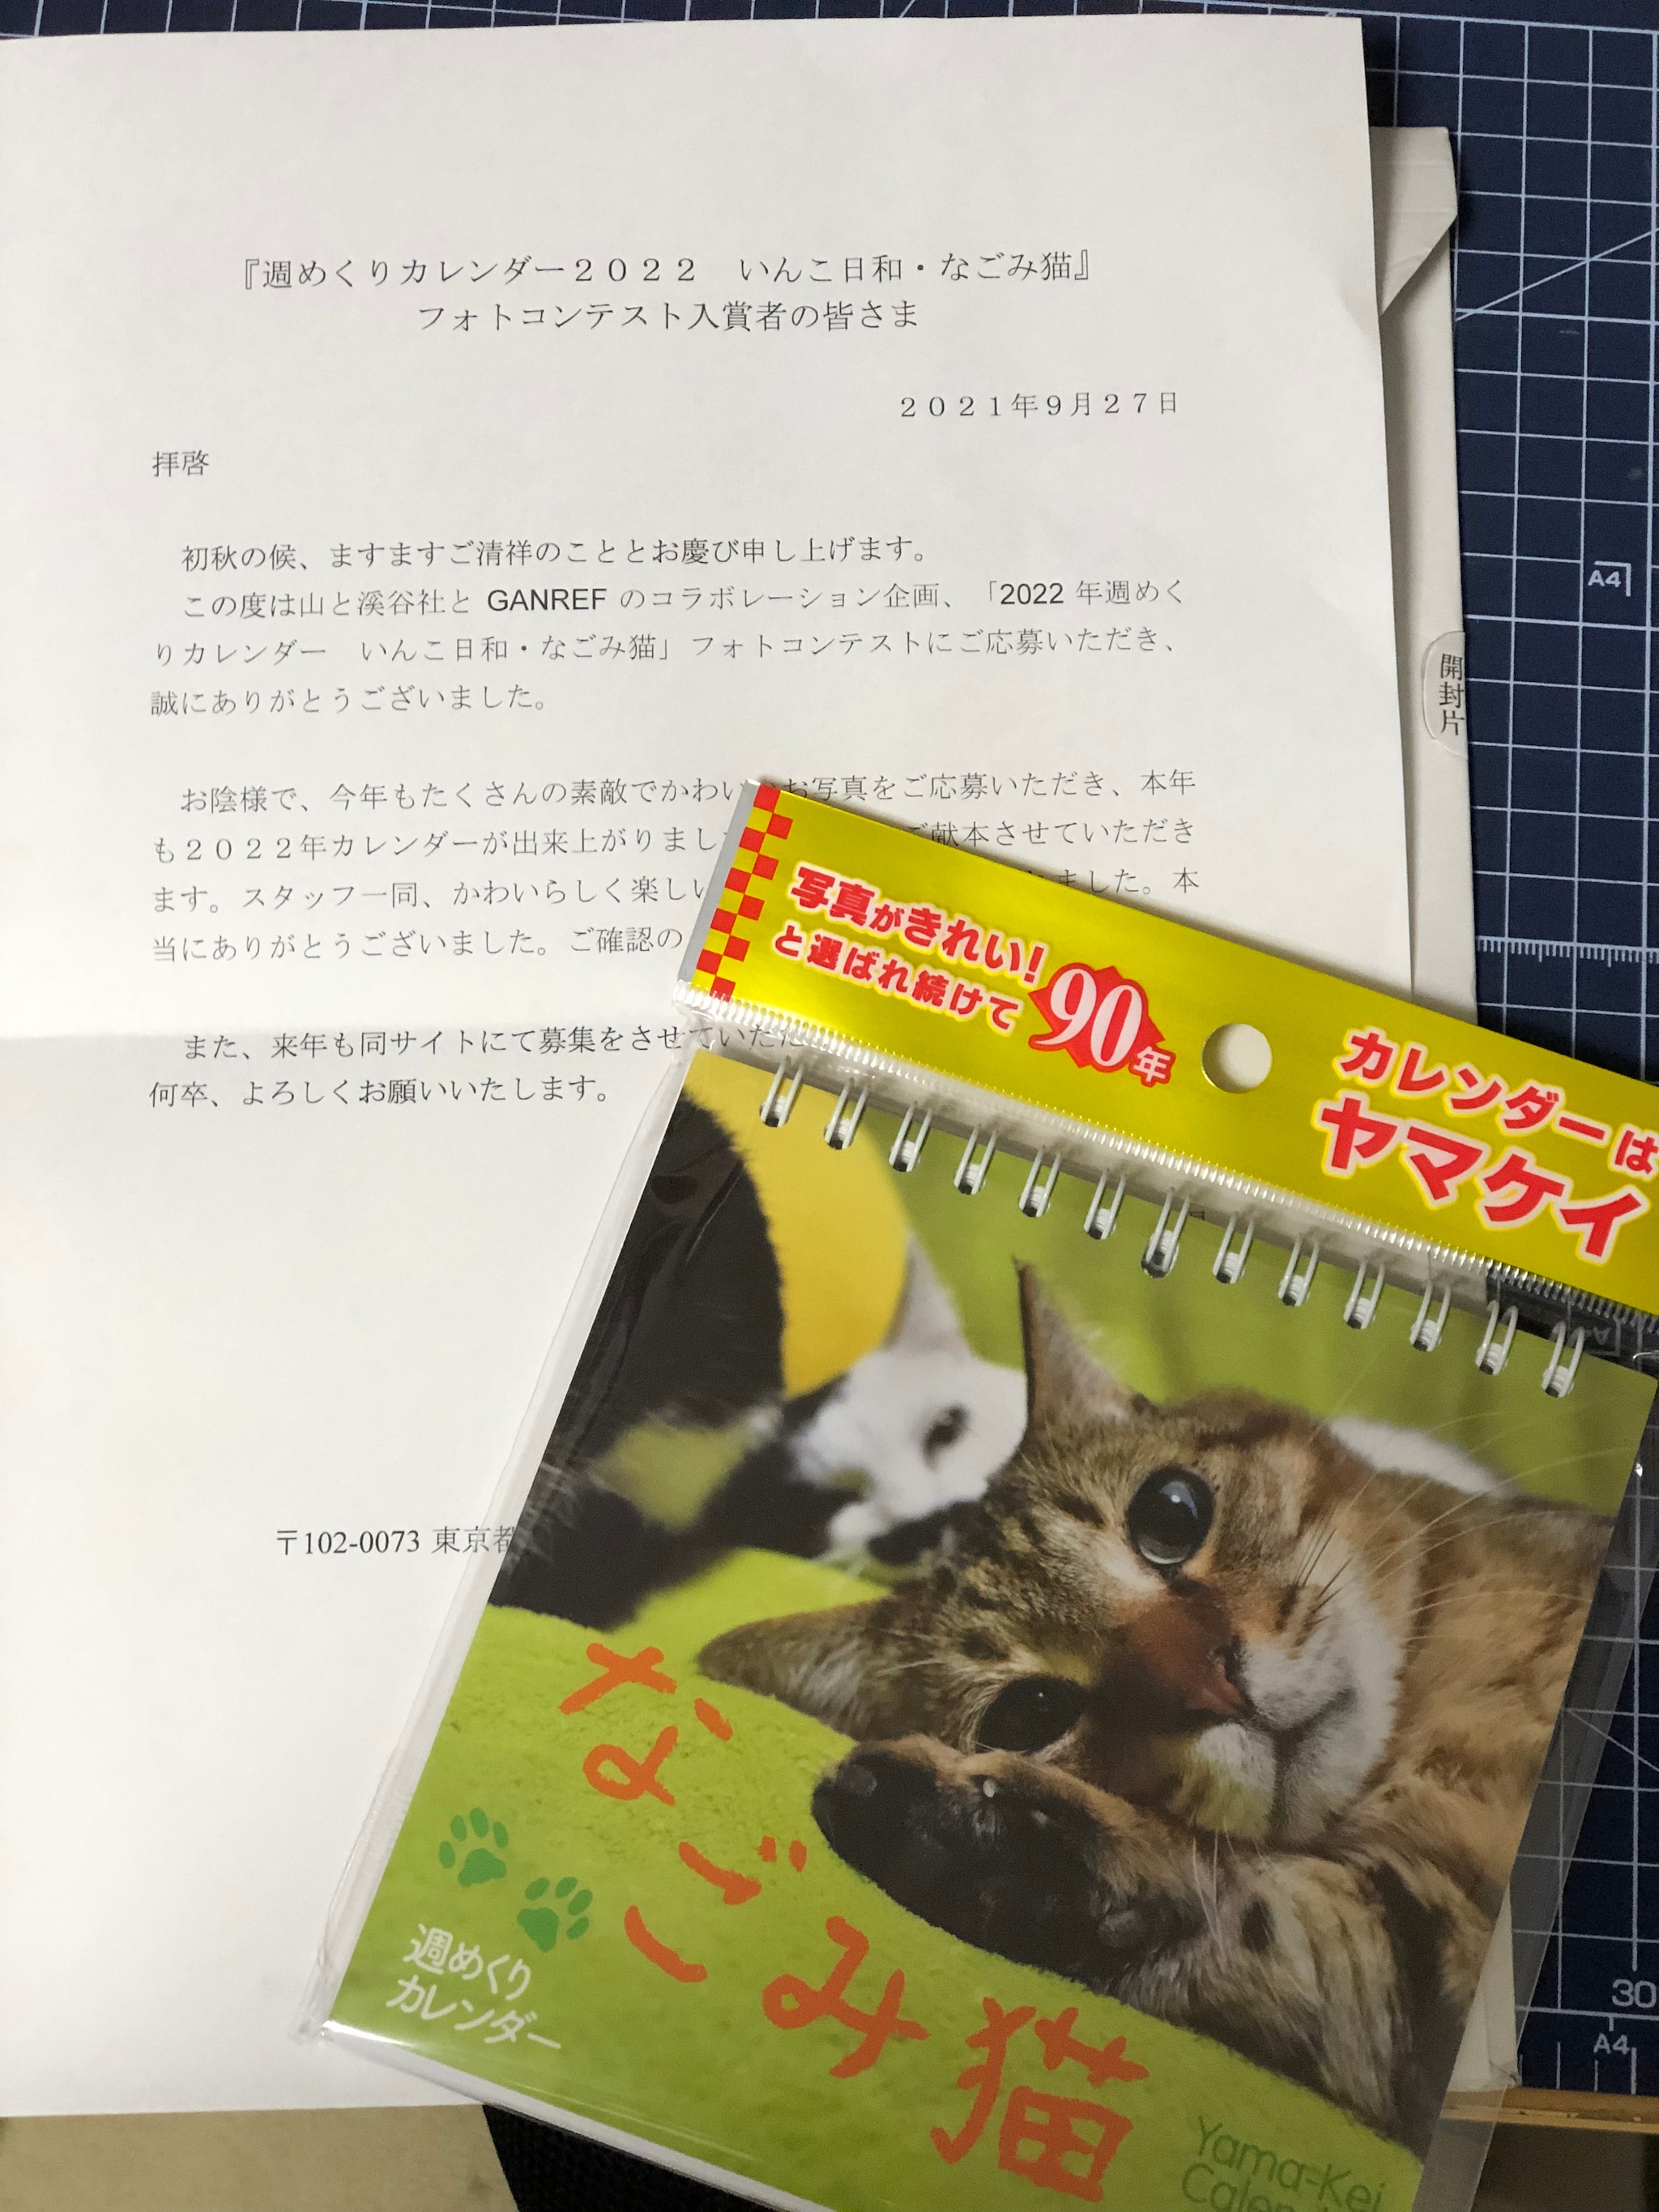 『週めくりカレンダー２０２２　いんこ日和・なごみ猫』
フォトコンテスト入賞者の皆さま
２０２１年９月２７日
拝啓
初秋の候、ますますご清祥のこととお慶び申し上げます。
この度は山と溪谷社と GANREF のコラボレーション企画、「2022 年週めく
りカレンダー　いんこ日和・なごみ猫」フォトコンテストにご応募いただき、
誠にありがとうございました。
お陰様で、今年もたくさんの素敵でかわい お写真をご応募いただき、本年
も２０２２年カレンダーが出来上がりまし ご献本させていただき
ます。スタッフ一同、かわいらしく楽し ました。本
当にありがとうございました。ご確認の
また、来年も同サイトにて募集をさせていただ
何卒、よろしくお願いいたします。
〒102-0073 東京都
開封片
写真がきれい！
と選ばれ続けて
90年
カレンダーは
ヤマケイ
なごみ猫
週めくり
カレンダー
Yama-Kei
A4
30
A4